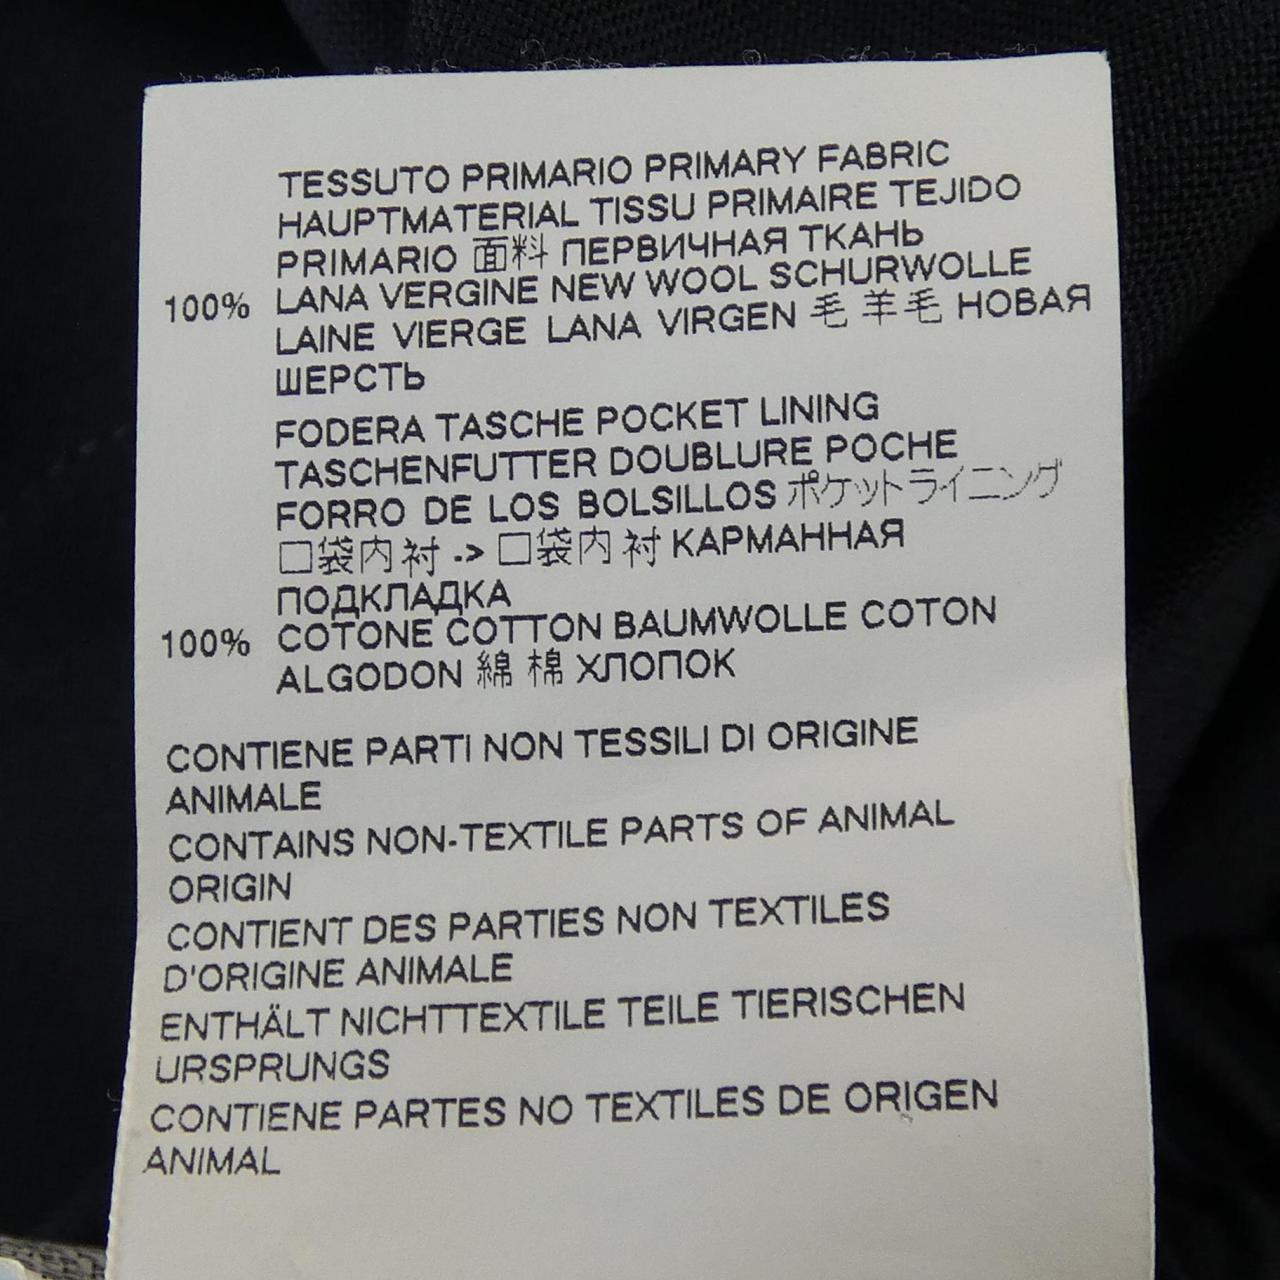 TESSUTO PRIMARIO PRIMARY FABRIC
HAUPTMATERIAL TISSU PRIMAIRE TEJIDO
PRIMARIO 面料 ПЕРВИЧНАЯ ТКАНЬ
100% LANA VERGINE NEW WOOL SCHURWOLLE
LAINE VIERGE LANA VIRGEN 毛 羊毛 НОВАЯ
ШЕРСТЬ
FODERA TASCHE POCKET LINING
TASCHENFUTTER DOUBLURE POCHE
FORRO DE LOS BOLSILLOS ポケットライニング
口袋内衬 -> 口袋内衬 КАРМАННАЯ
ПОДКЛАДКА
100% COTONE COTTON BAUMWOLLE COTON
ALGODON 綿 棉 ХЛОПОК
CONTIENE PARTI NON TESSILI DI ORIGINE
ANIMALE
CONTAINS NON-TEXTILE PARTS OF ANIMAL
ORIGIN
CONTIENT DES PARTIES NON TEXTILES
D'ORIGINE ANIMALE
ENTHÄLT NICHTTEXTILE TEILE TIERISCHEN
URSPRUNGS
CONTIENE PARTES NO TEXTILES DE ORIGEN
ANIMAL